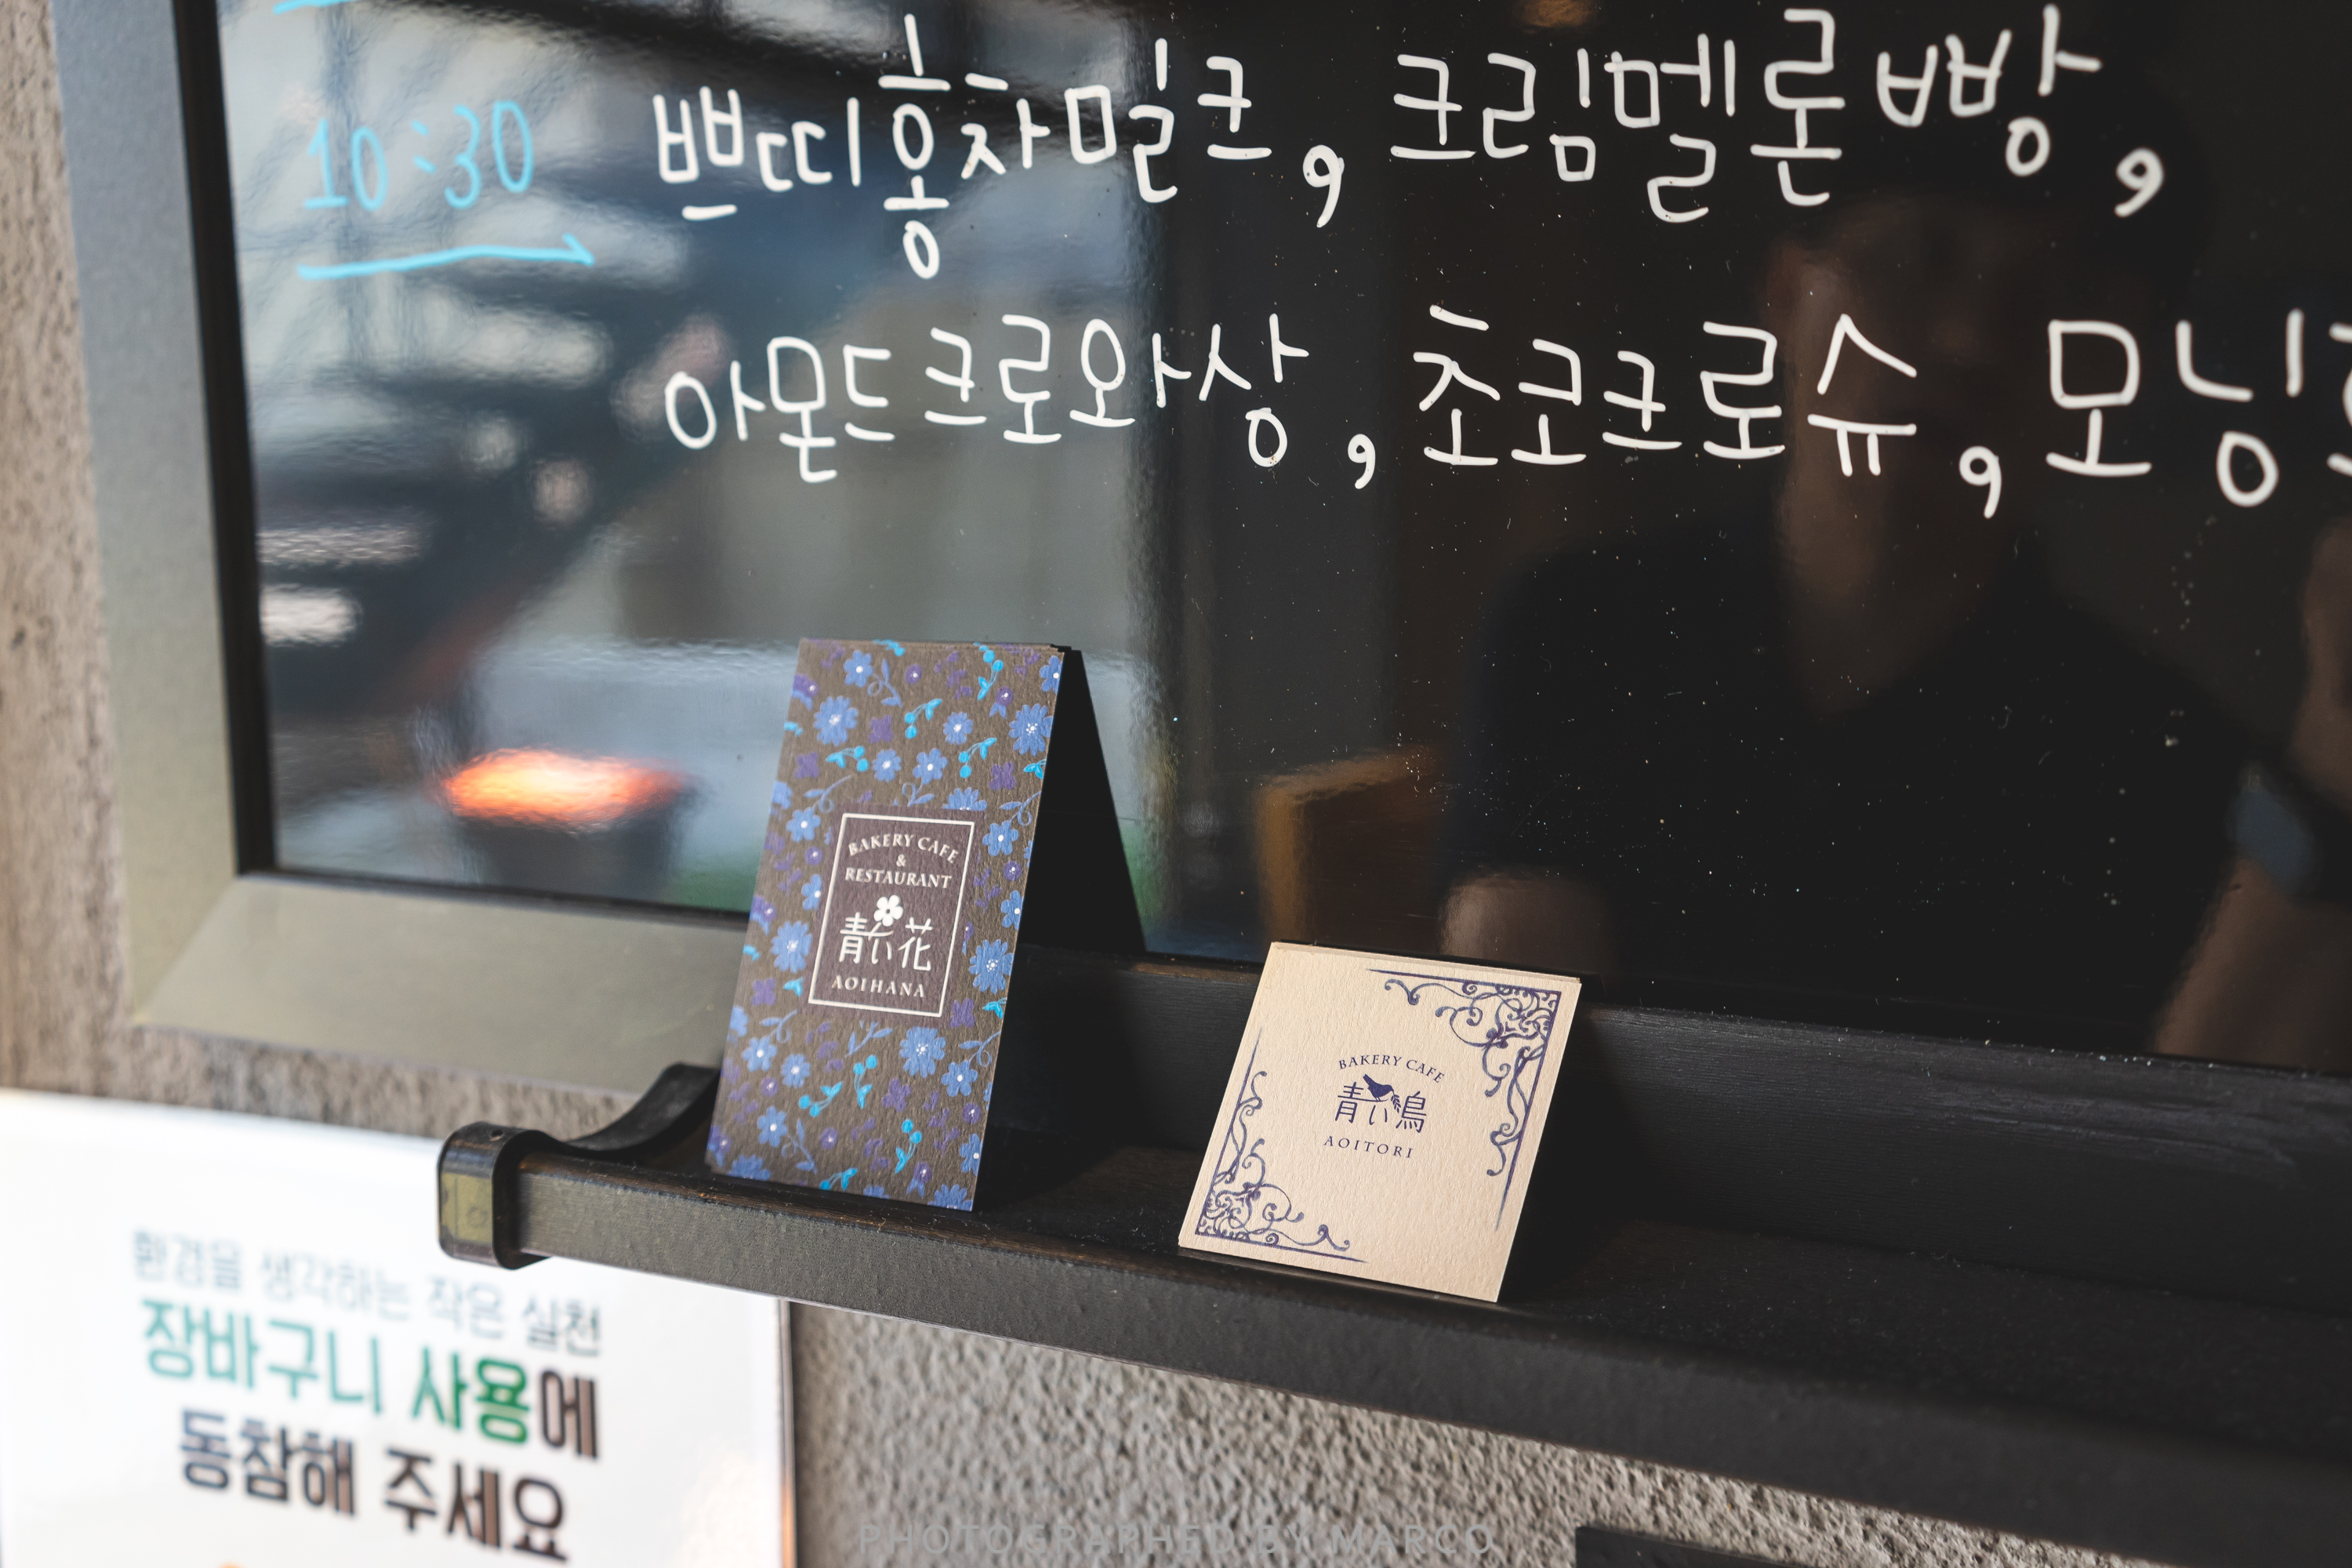 10:30 쁘띠홍차밀크, 크림멜론빵,
아몬드크로와상, 초코크로슈, 모닝
BAKERY CAFE
&
RESTAURANT
青い花
AOIHANA
BAKERY CAFE
青い鳥
AOITORI
환경을 생각하는 작은 실천
장바구니 사용에
동참해 주세요
PHOTOGRAPHED BY MARCO